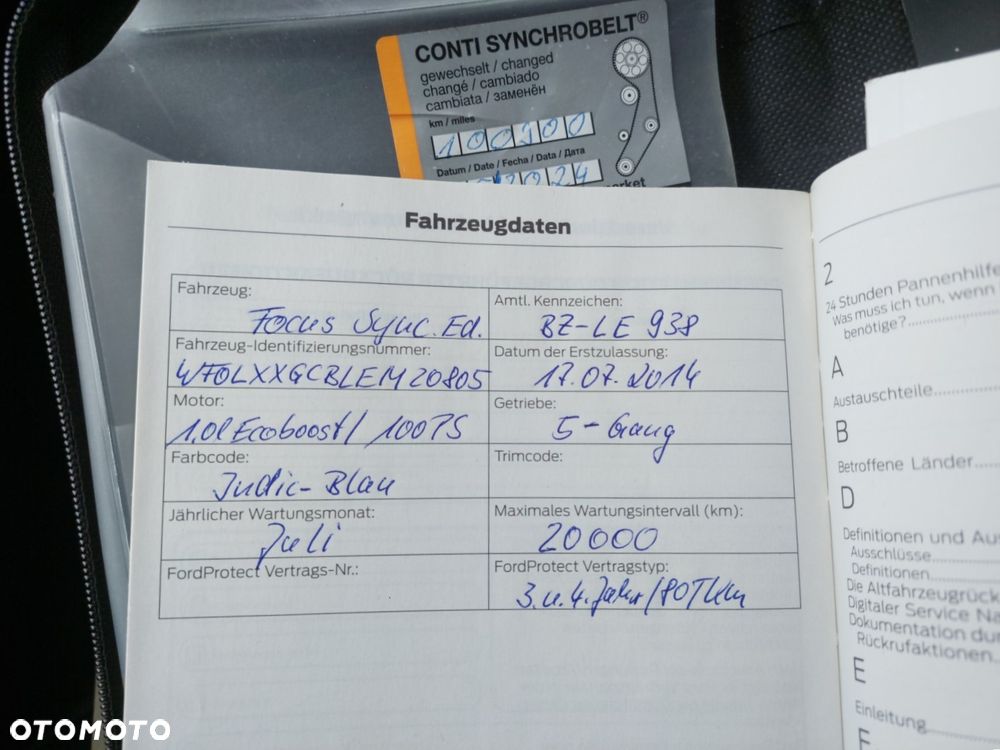 CONTI SYNCHROBELT®
gewechselt / changed
changé / cambiado
cambiata / заменён
km / miles
100900
Datum / Date / Fecha / Data / Дата
2024
Fahrzeugdaten
Fahrzeug:
Focus Sync. Ed.
Amtl. Kennzeichen:
BZ-LE 938
Fahrzeug-Identifizierungsnummer:
WF0LXXGCBLEM20805
Datum der Erstzulassung:
17.07.2014
Motor:
1.0l Ecoboost / 100PS
Getriebe:
5-Gang
Farbcode:
Indic-Blau
Trimcode:
Jährlicher Wartungsmonat:
Juli
Maximales Wartungsintervall (km):
20000
FordProtect Vertrags-Nr.:
FordProtect Vertragstyp:
3. u. 4. Jahr / 80Tkm
2
24 Stunden Pannenhilfe
Was muss ich tun, wenn
benötige?
A
Austauschteile
B
Betroffene Länder
D
Definitionen und Au
Ausschlüsse
Definitionen
Die Altfahrzeugrück
Digitaler Service Na
Dokumentation du
Rückrufaktionen
E
Einleitung
F
OTOMOTO